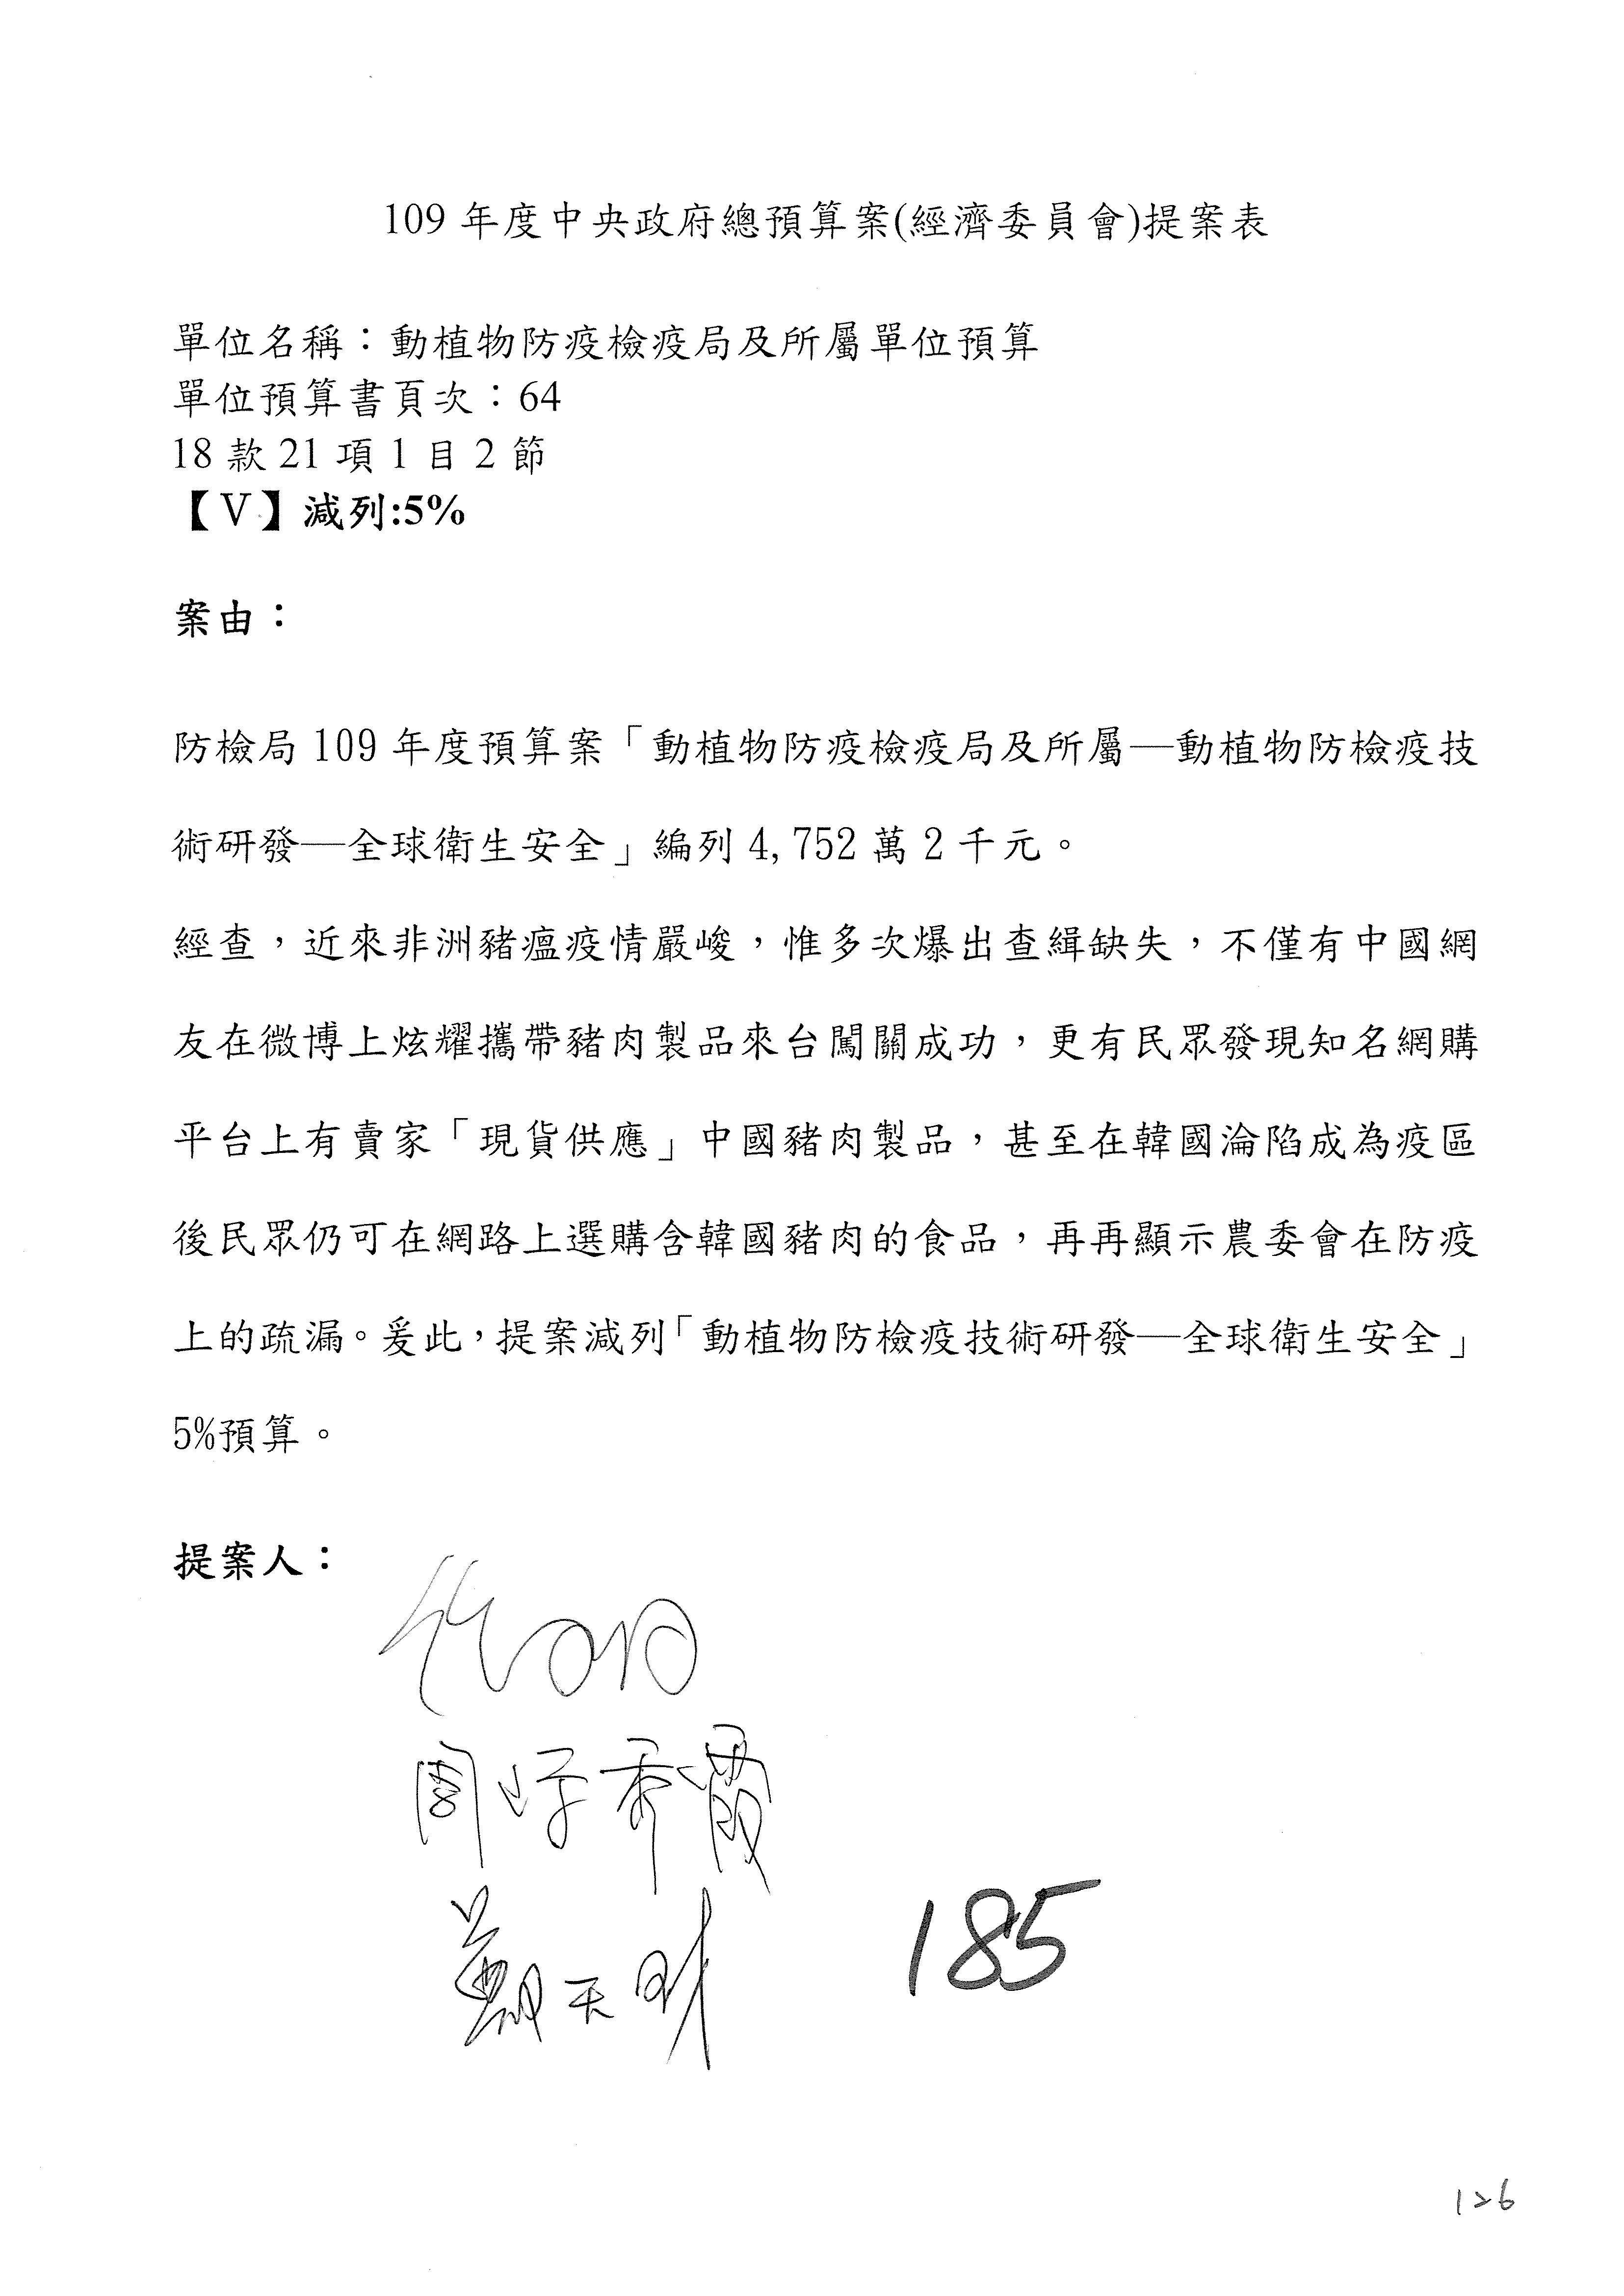 109 年度中央政府總預算案(經濟委員會)提案表
單位名稱：動植物防疫檢疫局及所屬單位預算
單位預算書頁次：64
18 款 21 項 1 目 2 節
【V】減列:5%
案由：
防檢局 109 年度預算案「動植物防疫檢疫局及所屬—動植物防檢疫技
術研發—全球衛生安全」編列 4,752 萬 2 千元。
經查，近來非洲豬瘟疫情嚴峻，惟多次爆出查緝缺失，不僅有中國網
友在微博上炫耀攜帶豬肉製品來台闖關成功，更有民眾發現知名網購
平台上有賣家「現貨供應」中國豬肉製品，甚至在韓國淪陷成為疫區
後民眾仍可在網路上選購含韓國豬肉的食品，再再顯示農委會在防疫
上的疏漏。爰此，提案減列「動植物防檢疫技術研發—全球衛生安全」
5%預算。
提案人：
周陳秀霞
鄭天財
185
126